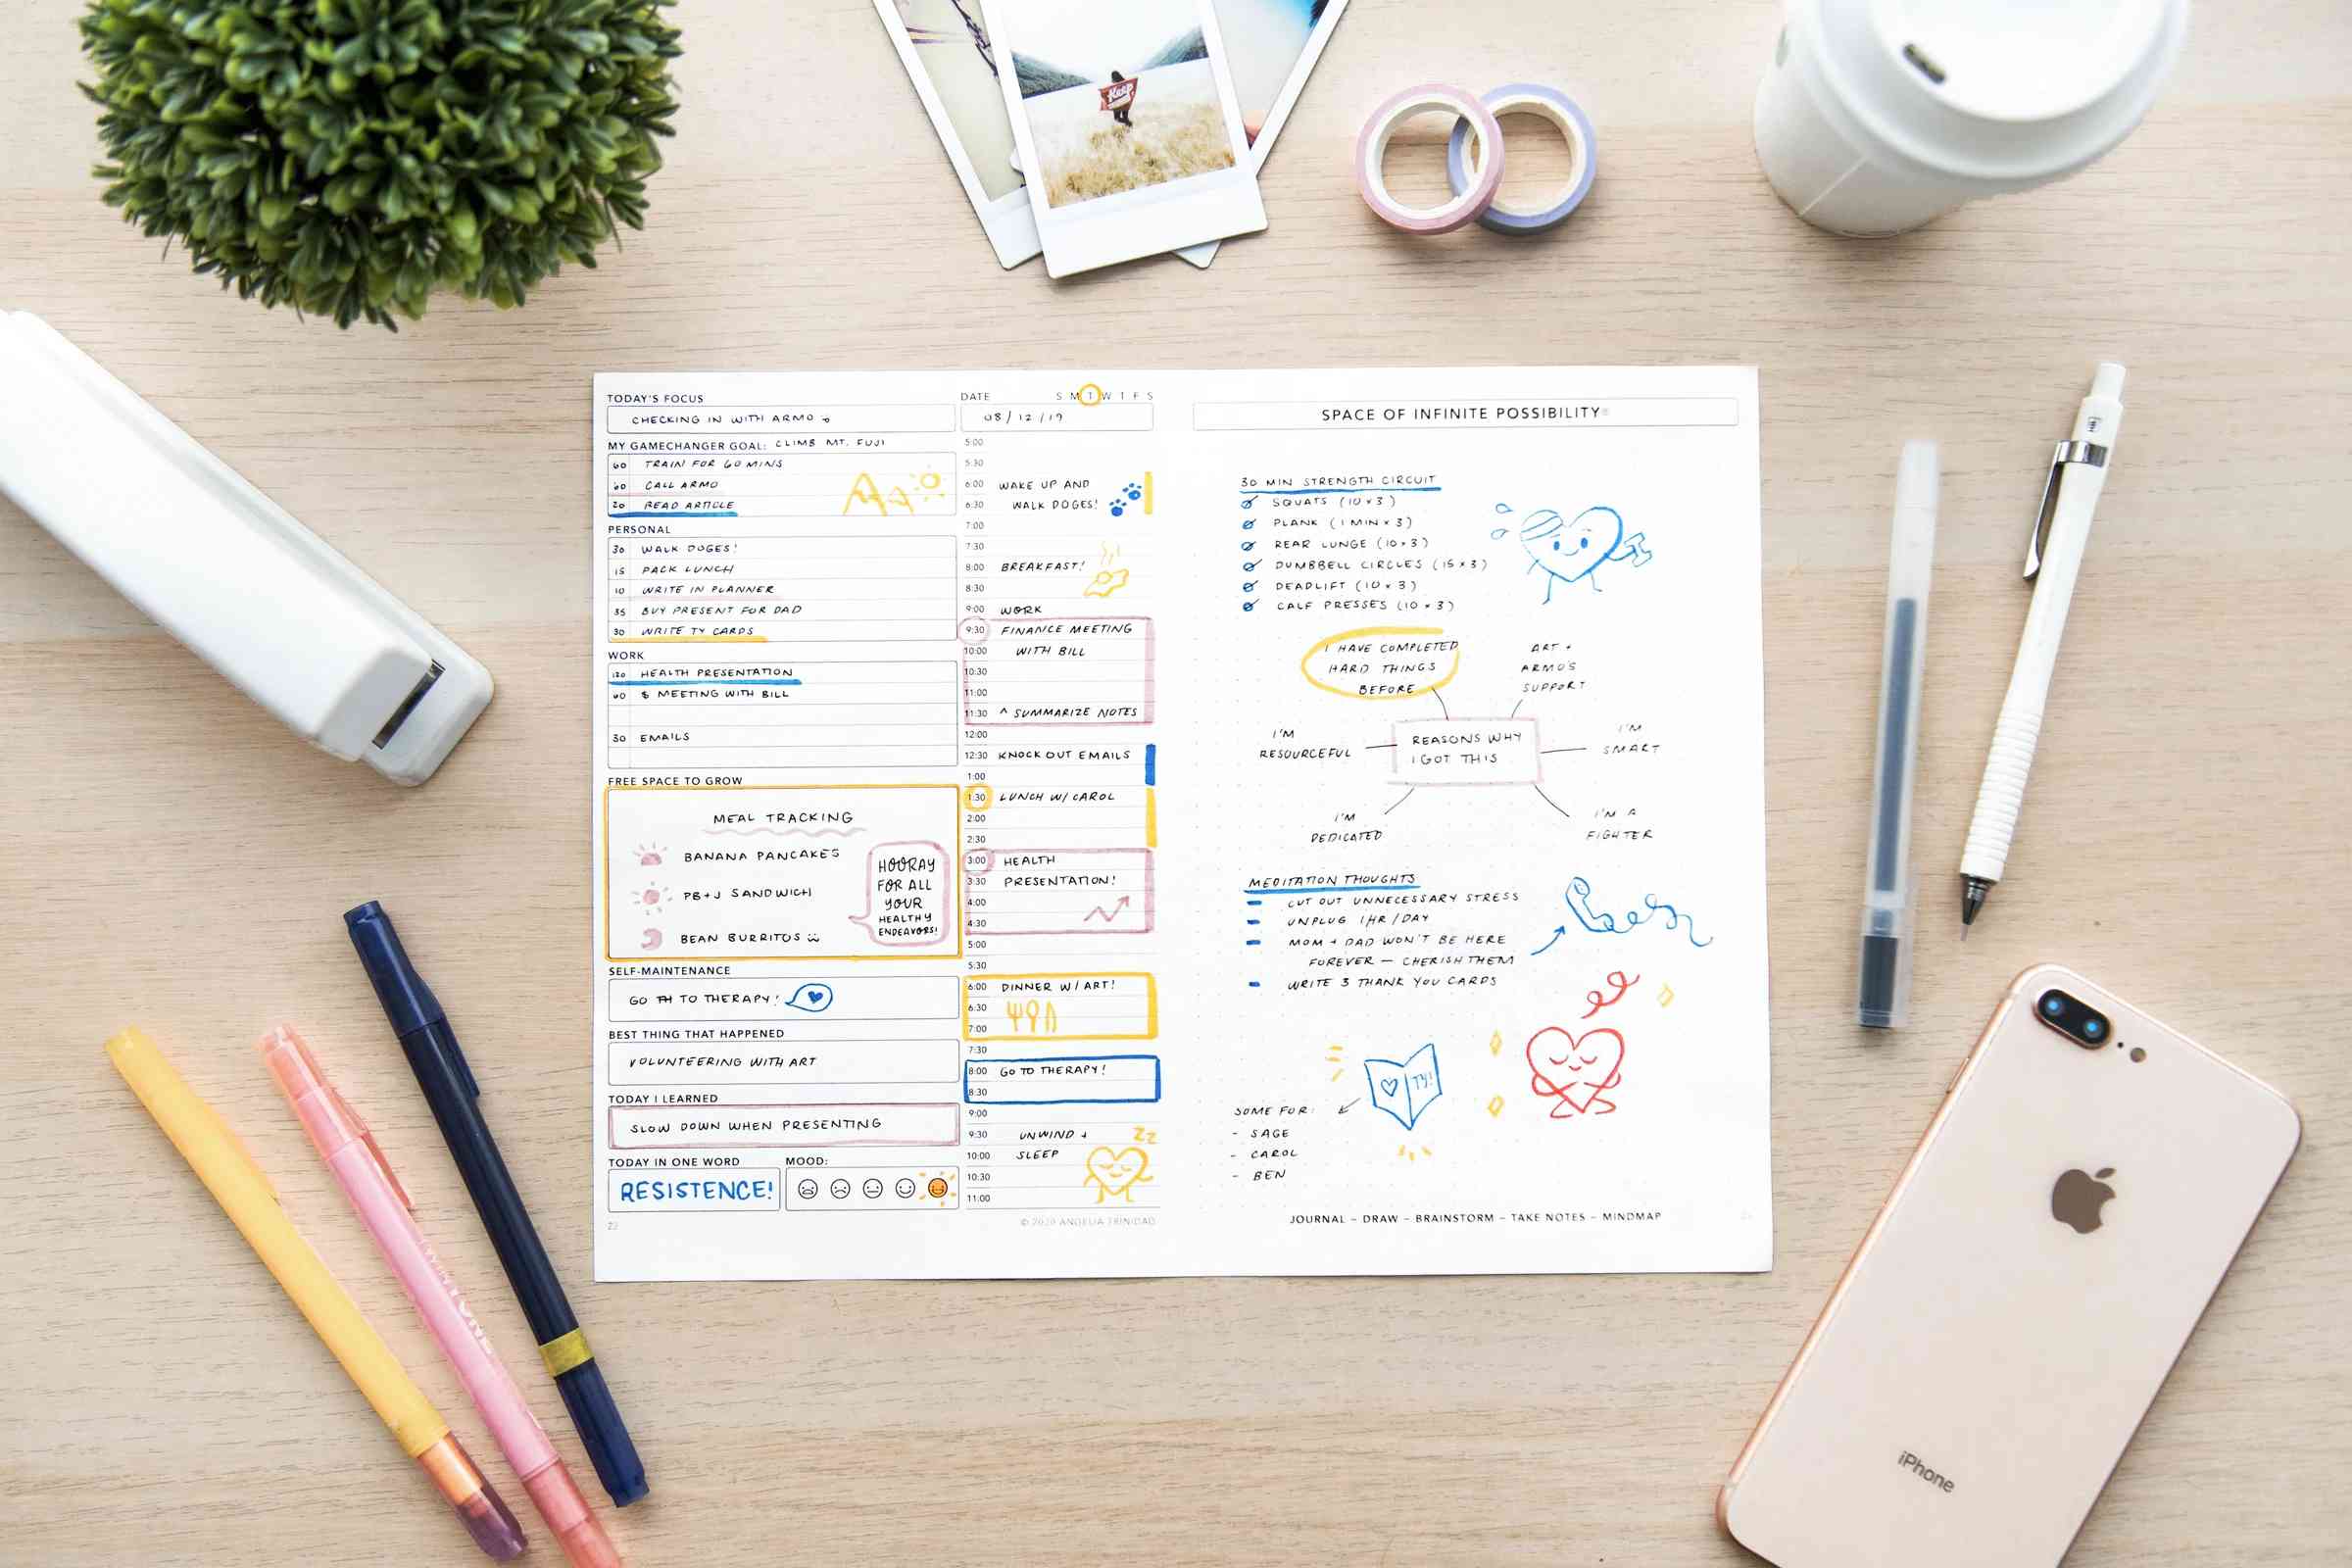 Keep
TODAY'S FOCUS
CHECKING IN WITH ARMO
MY GAMECHANGER GOAL: CLIMB MT. FUJI
60 TRAIN FOR 60 MINS
60 CALL ARMO
20 READ ARTICLE
PERSONAL
30 WALK DOGES!
15 PACK LUNCH
10 WRITE IN PLANNER
35 BUY PRESENT FOR DAD
30 WRITE TY CARDS
WORK
120 HEALTH PRESENTATION
60 $ MEETING WITH BILL
30 EMAILS
FREE SPACE TO GROW
MEAL TRACKING
BANANA PANCAKES
PB+J SANDWICH
BEAN BURRITOS
HOORAY
FOR ALL
YOUR
HEALTHY
ENDEAVORS!
SELF-MAINTENANCE
GO TO THERAPY!
BEST THING THAT HAPPENED
VOLUNTEERING WITH ART
TODAY I LEARNED
SLOW DOWN WHEN PRESENTING
TODAY IN ONE WORD
RESISTENCE!
MOOD:
22
DATE S M T W T F S
08/12/19
5:00
5:30
6:00 WAKE UP AND
6:30 WALK DOGES!
7:00
7:30
8:00 BREAKFAST!
8:30
9:00 WORK
9:30 FINANCE MEETING
10:00 WITH BILL
10:30
11:00
11:30 ^ SUMMARIZE NOTES
12:00
12:30 KNOCK OUT EMAILS
1:00
1:30 LUNCH W/ CAROL
2:00
2:30
3:00 HEALTH
3:30 PRESENTATION!
4:00
4:30
5:00
5:30
6:00 DINNER W/ ART!
6:30
7:00
7:30
8:00 GO TO THERAPY!
8:30
9:00
9:30 UNWIND +
10:00 SLEEP
10:30
11:00
ZZ
© 2020 ANGELIA TRINIDAD
SPACE OF INFINITE POSSIBILITY®
30 MIN STRENGTH CIRCUIT
SQUATS (10 x 3)
PLANK (1 MIN x 3)
REAR LUNGE (10 x 3)
DUMBBELL CIRCLES (15 x 3)
DEADLIFT (10 x 3)
CALF PRESSES (10 x 3)
I HAVE COMPLETED
HARD THINGS
BEFORE
ART +
ARMO'S
SUPPORT
I'M
RESOURCEFUL
REASONS WHY
I GOT THIS
I'M
SMART
I'M
DEDICATED
I'M A
FIGHTER
MEDITATION THOUGHTS
- CUT OUT UNNECESSARY STRESS
- UNPLUG 1HR/DAY
- MOM + DAD WON'T BE HERE
FOREVER — CHERISH THEM
- WRITE 3 THANK YOU CARDS
TY!
SOME FOR:
- SAGE
- CAROL
- BEN
JOURNAL – DRAW – BRAINSTORM – TAKE NOTES – MINDMAP
iPhone